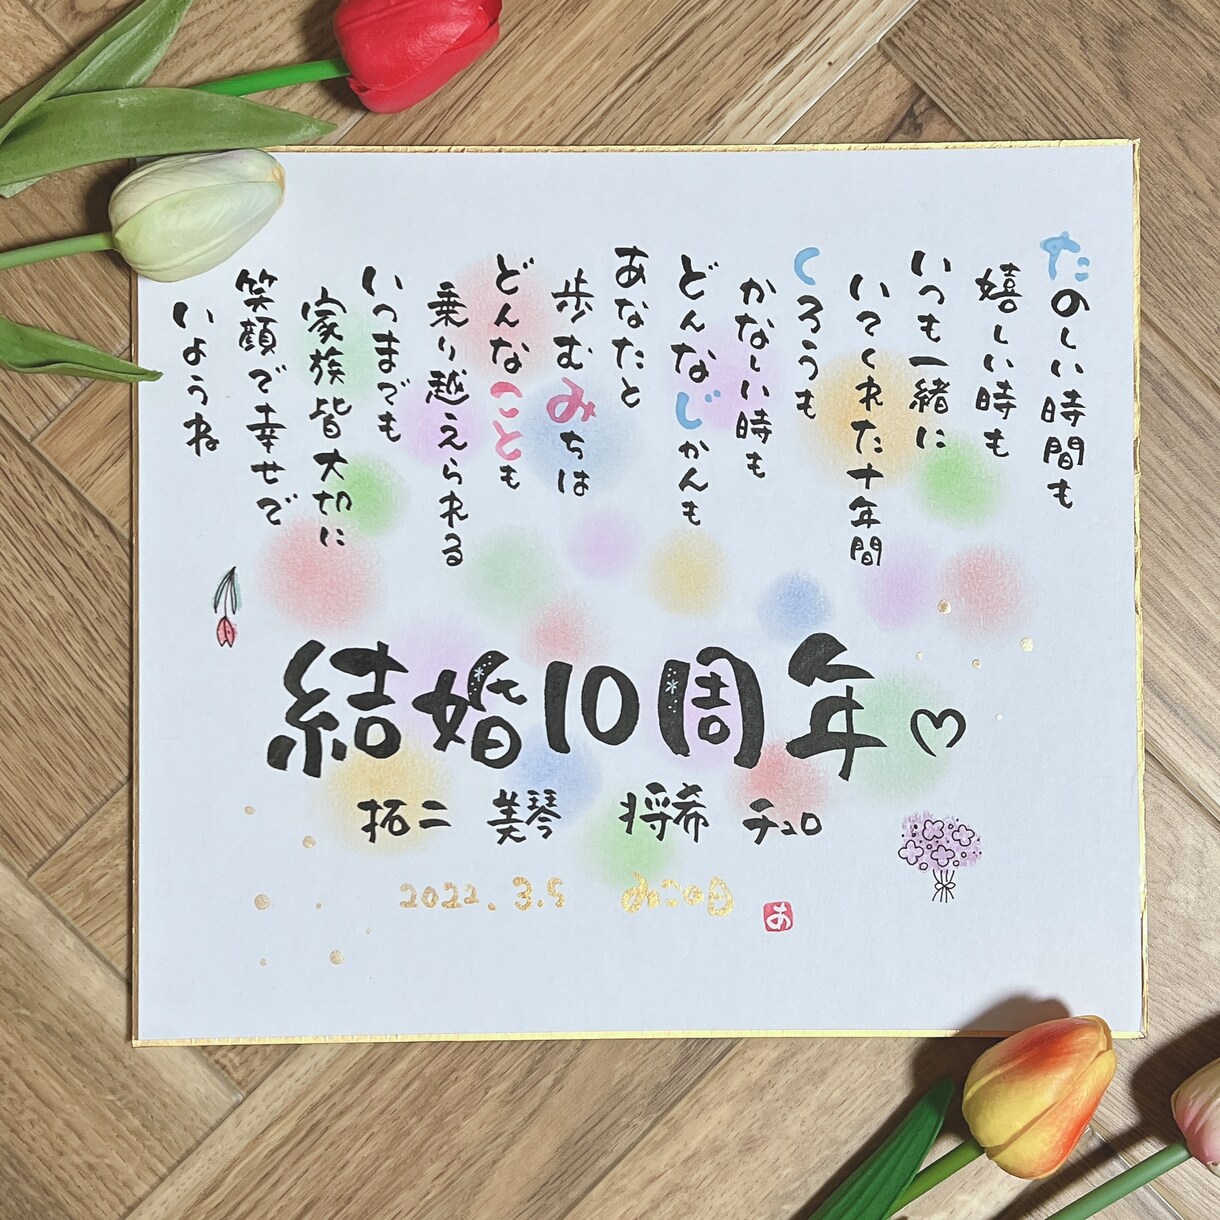 たのしい時間も
嬉しい時も
いつも一緒に
いてくれた十年間
くろうも
かなしい時も
どんなじかんも
あなたと
歩むみちは
どんなことも
乗り越えられる
いつまでも
家族皆大切に
笑顔で幸せで
いようね
結婚10周年♡
拓二 美琴 将希 チュロ
2022.3.5 みこの日
あ